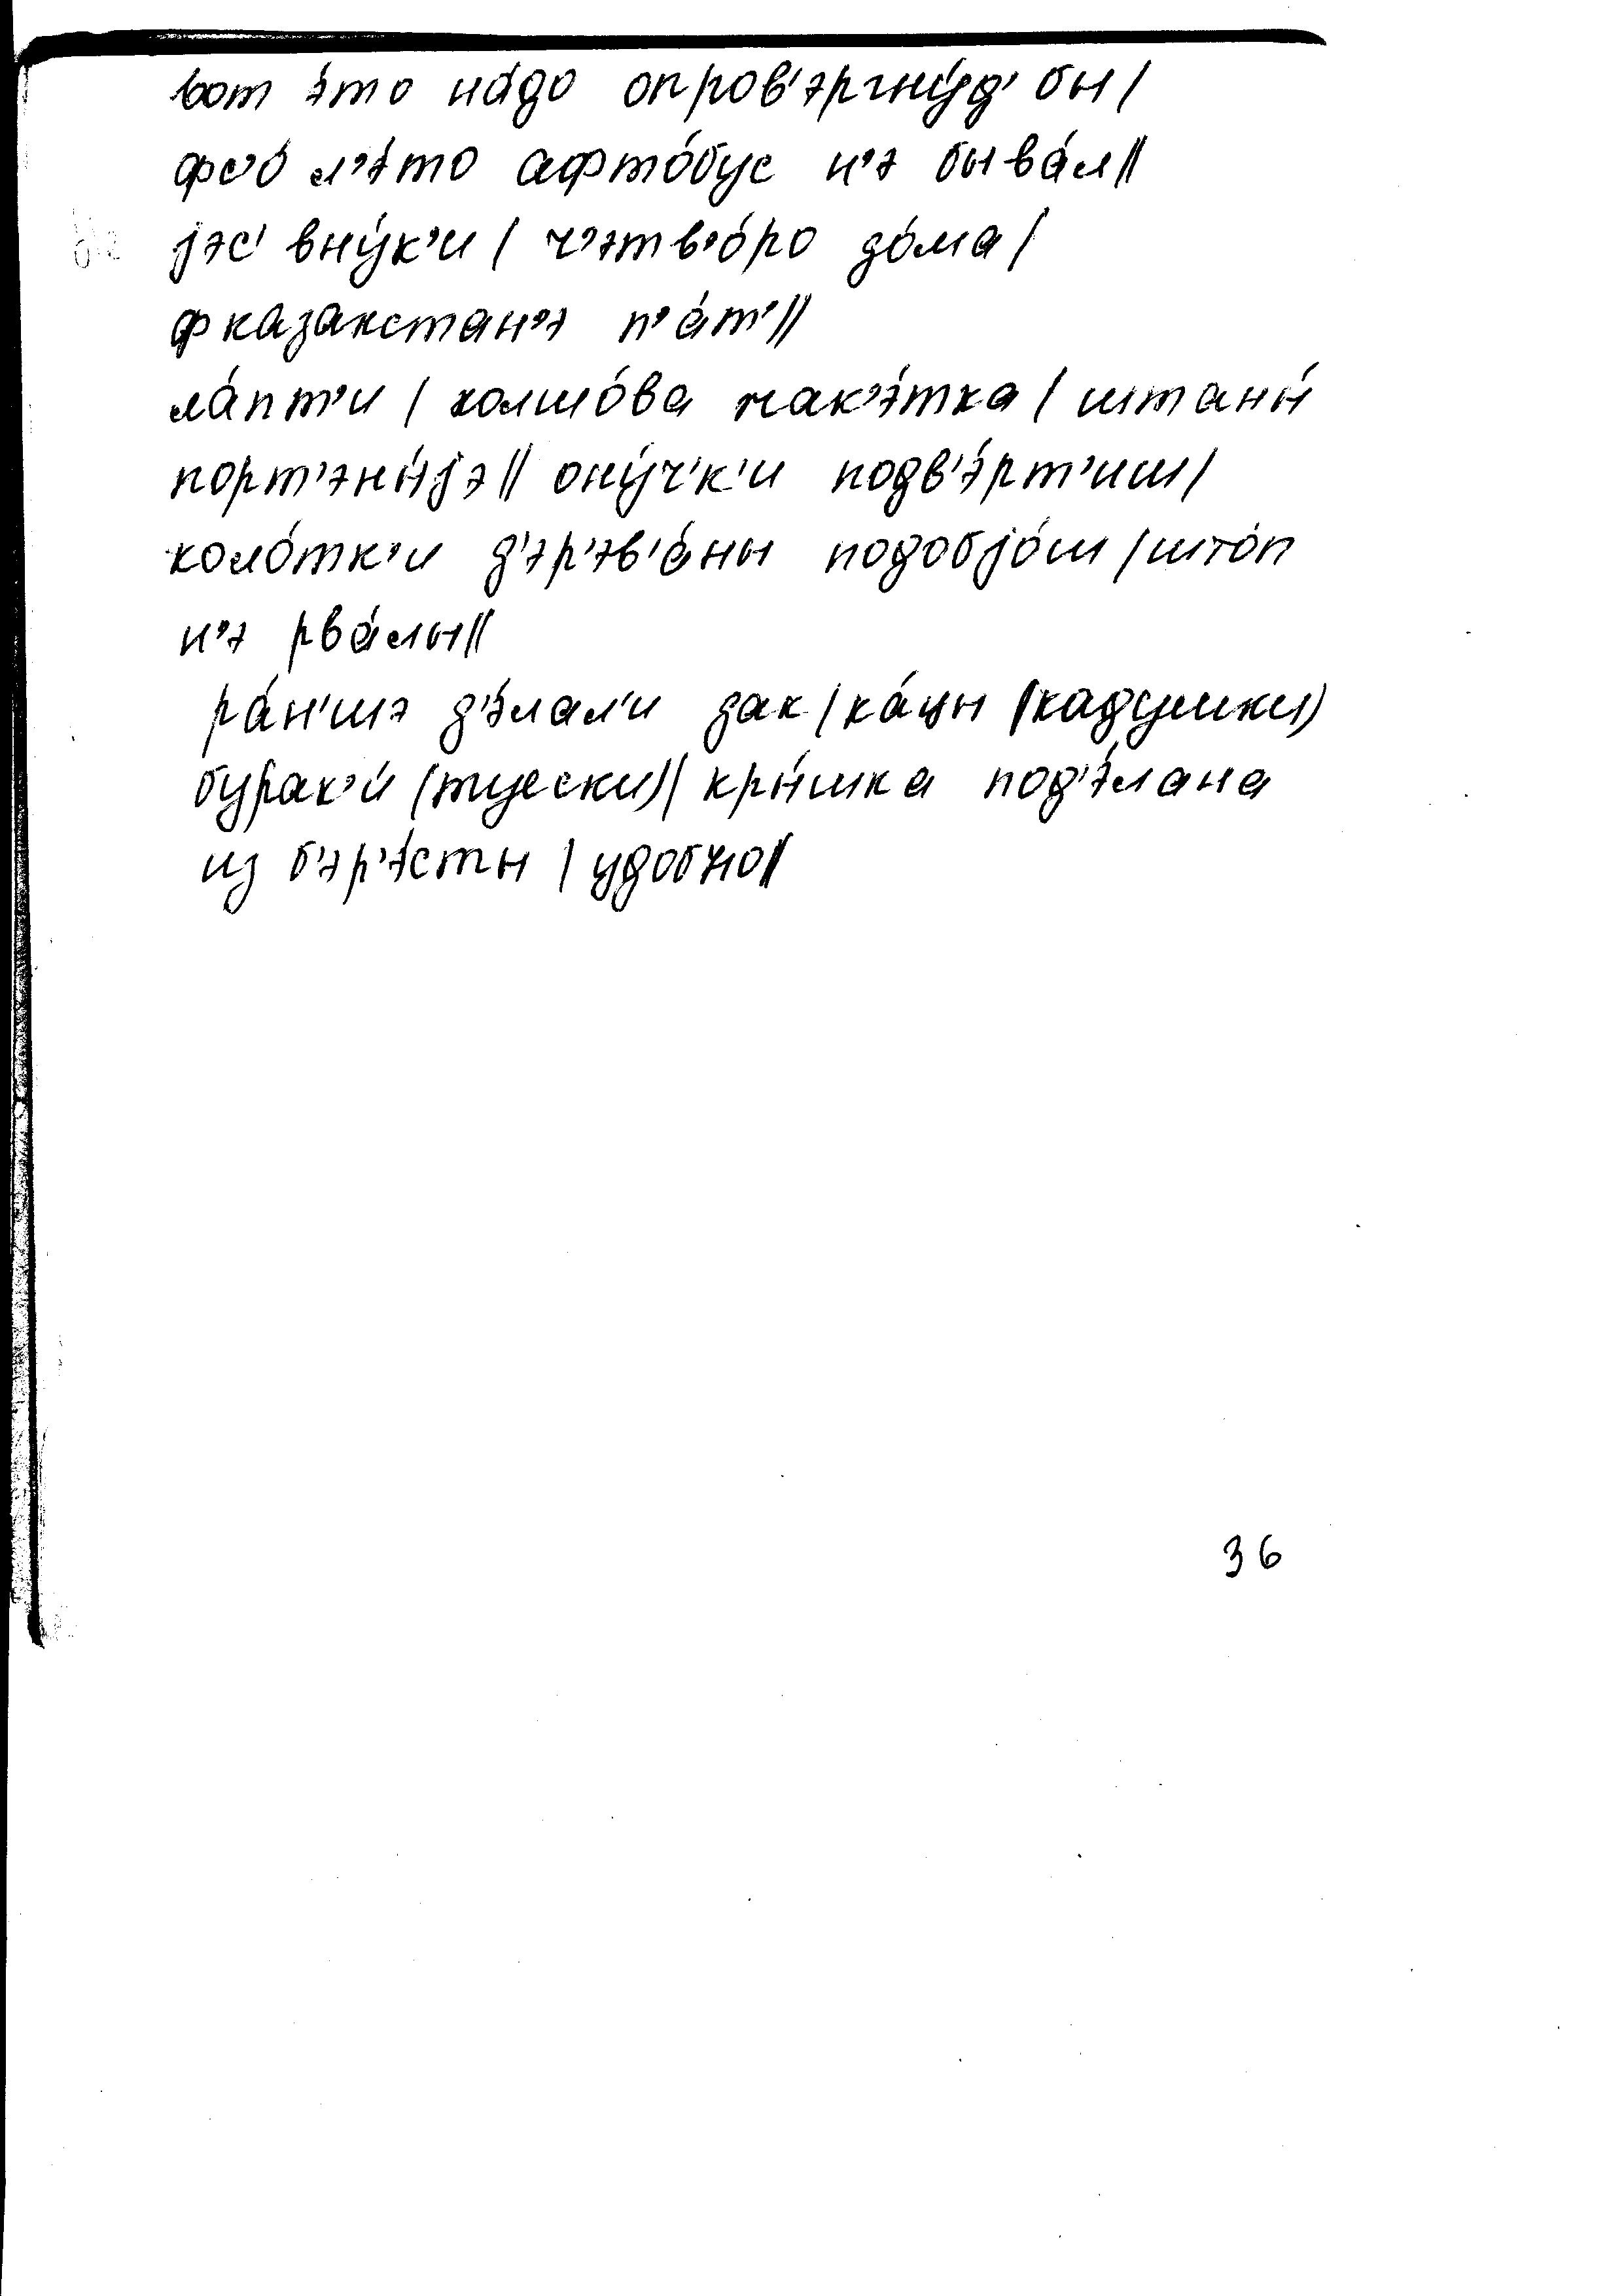 вот э́то на́до опров'эргну́д' бы |
фс'о́ л'э́то афто́бус н'э быва́л ||
jэс' вну́к'и | ч'этв'о́ро до́ма |
ф казакстан'э п'а́т' ||
ла́пт'и | холшо́ва жак'э́тка | штаны́
порт'эны́jэ || ону́ч'к'и подв'э́рт'иш |
коло́тк'и д'эр'эв'а́ны подобjо́ш | што́п
н'э рва́лы ||
ра́н'шэ д'э́лал'и дак | ка́цы (кадушки)
бурак'и́ (туески) | кры́шка под'э́лана
из б'эр'э́сты | удобно ||
36